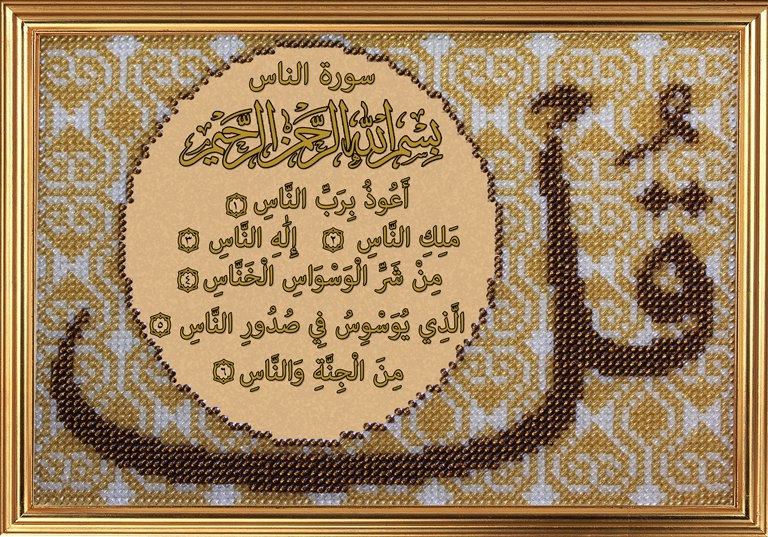 سورة الناس
بِسْمِ اللهِ الرَّحْمٰنِ الرَّحِيْمِ
قُل
أَعُوذُ بِرَبِّ النَّاسِ ١
مَلِكِ النَّاسِ ٢ إِلَٰهِ النَّاسِ ٣
مِنْ شَرِّ الْوَسْوَاسِ الْخَنَّاسِ ٤
الَّذِي يُوَسْوِسُ فِي صُدُورِ النَّاسِ ٥
مِنَ الْجِنَّةِ وَالنَّاسِ ٦